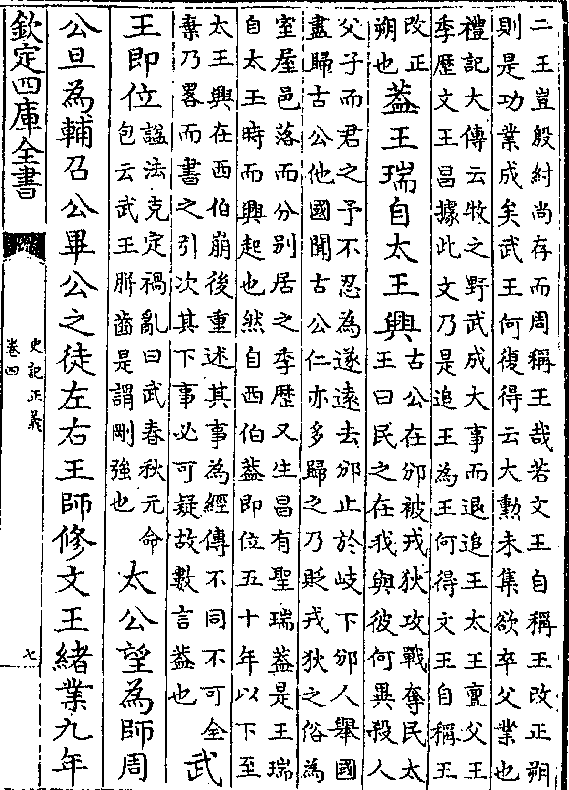 二王豈殷紂尚存而周稱王哉若文王自稱王改正朔
則是功業成矣武王何復得云大勲未集欲卒父業也
禮記大傳云牧之野武成大事而退追王太王亶父王
季歷文王昌據此文乃是追王為王何得文王自稱王
改正
朔也
葢王瑞自太王興
古公在邠被戎狄攻戰奪民太
王曰民之在我與彼何異殺人
父子而君之予不忍為遂遠去邠止於岐下邠人舉國
盡歸古公他國聞古公仁亦多歸之乃貶戎狄之俗為
室屋邑落而分别居之季歷又生昌有聖瑞葢是王瑞
自太王時而興起也然自西伯葢即位五十年以下至
太王興在西伯崩後重述其事為經傳不同不可全
棄乃畧而書之引次其下事必可疑故數言葢也
武
王即位
諡法克定禍亂曰武春秋元命
包云武王駢齒是謂剛強也
太公望為師周
公旦為輔召公畢公之徒左右王師修文王緒業九年
欽定四庫全書
史記正義
卷四
七